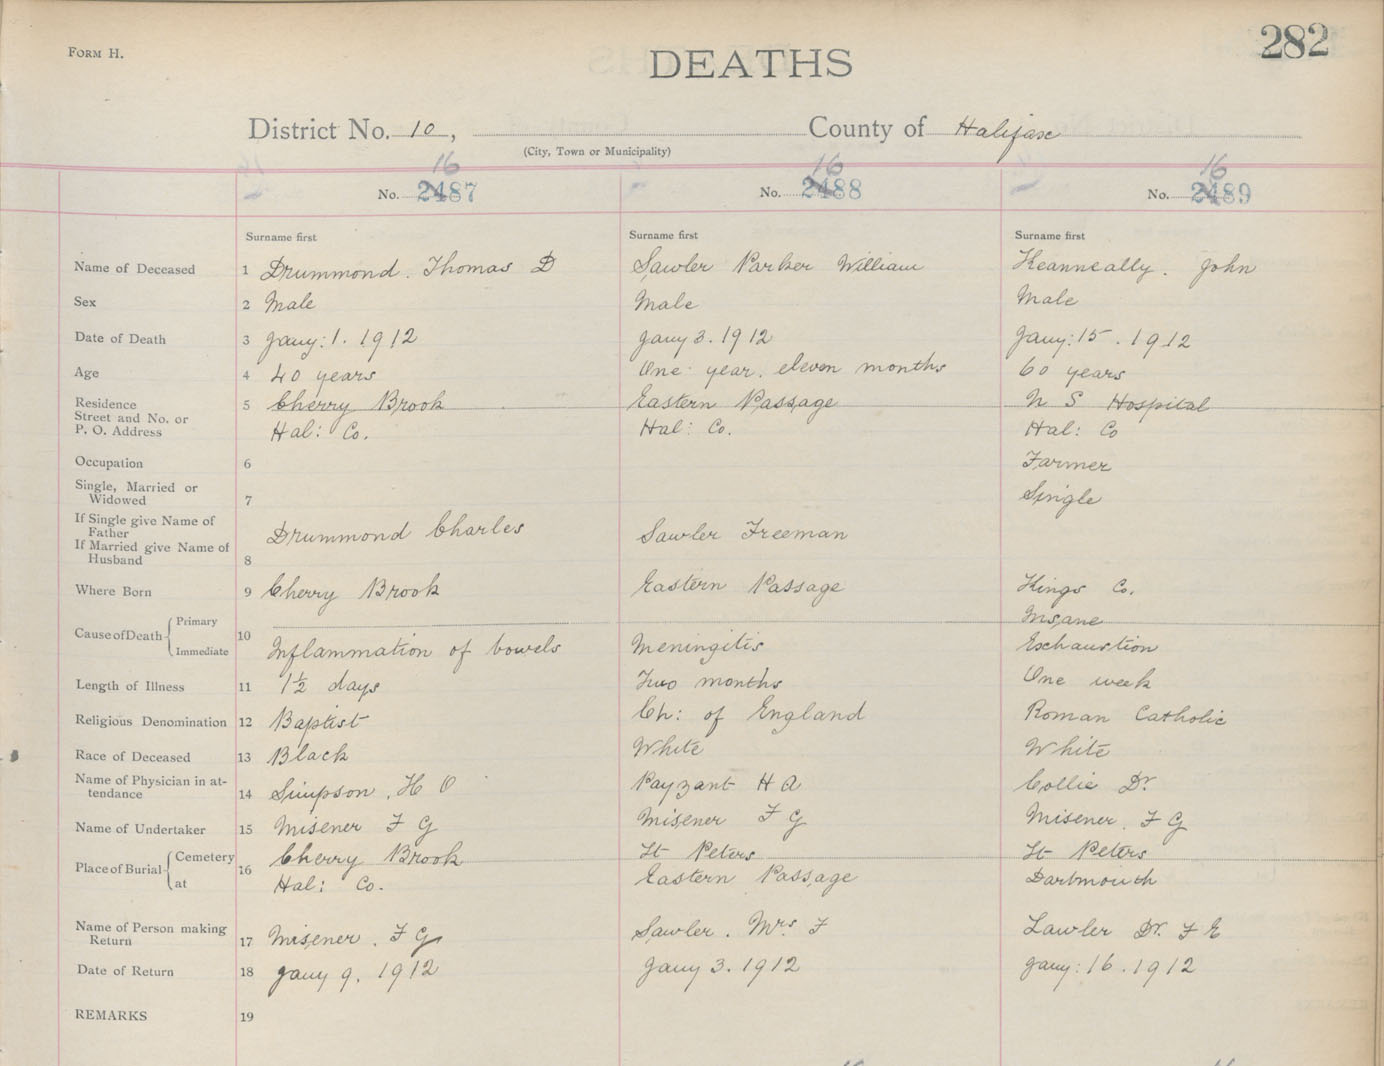 FORM H.
DEATHS
282
District No. 10, County of Halifax
(City, Town or Municipality)
16 16 16
No. 2487 No. 2488 No. 2489
Surname first Surname first Surname first
Name of Deceased 1 Drummond. Thomas D Sawler Parker William Keanneally. John
Sex 2 Male Male Male
Date of Death 3 Jany: 1. 1912 Jany 3. 1912 Jany: 15. 1912
Age 4 40 years One year. eleven months 60 years
Residence 5 Cherry Brook Eastern Passage N S Hospital
Street and No. or
P. O. Address Hal: Co. Hal: Co. Hal: Co
Occupation 6 Farmer
Single, Married or
Widowed 7 Single
If Single give Name of
Father Drummond Charles Sawler Freeman
If Married give Name of
Husband 8
Where Born 9 Cherry Brook Eastern Passage Kings Co.
Cause of Death Primary 10 Insane
Immediate Inflammation of bowels Meningitis Exhaustion
Length of Illness 11 1½ days Two months One week
Religious Denomination 12 Baptist Ch: of England Roman Catholic
Race of Deceased 13 Black White White
Name of Physician in at-
tendance 14 Simpson. H O Payzant H A Collie Dr.
Name of Undertaker 15 Misener F G Misener F G Misener. F G
Place of Burial Cemetery 16 Cherry Brook St Peters St Peters
at Hal: Co. Eastern Passage Dartmouth
Name of Person making
Return 17 Misener. F G Sawler. Mrs. F Lawler Dr. F E
Date of Return 18 Jany 9. 1912 Jany 3. 1912 Jany: 16. 1912
REMARKS 19